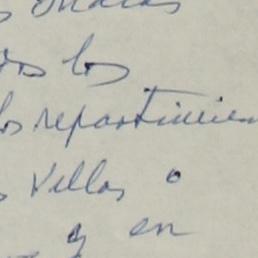 los
los repartimien
Villas o
y en